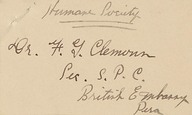 Humane Society
Dr. H. G. Clemonn
Sec. S. P. C.
British Embassy
Pera